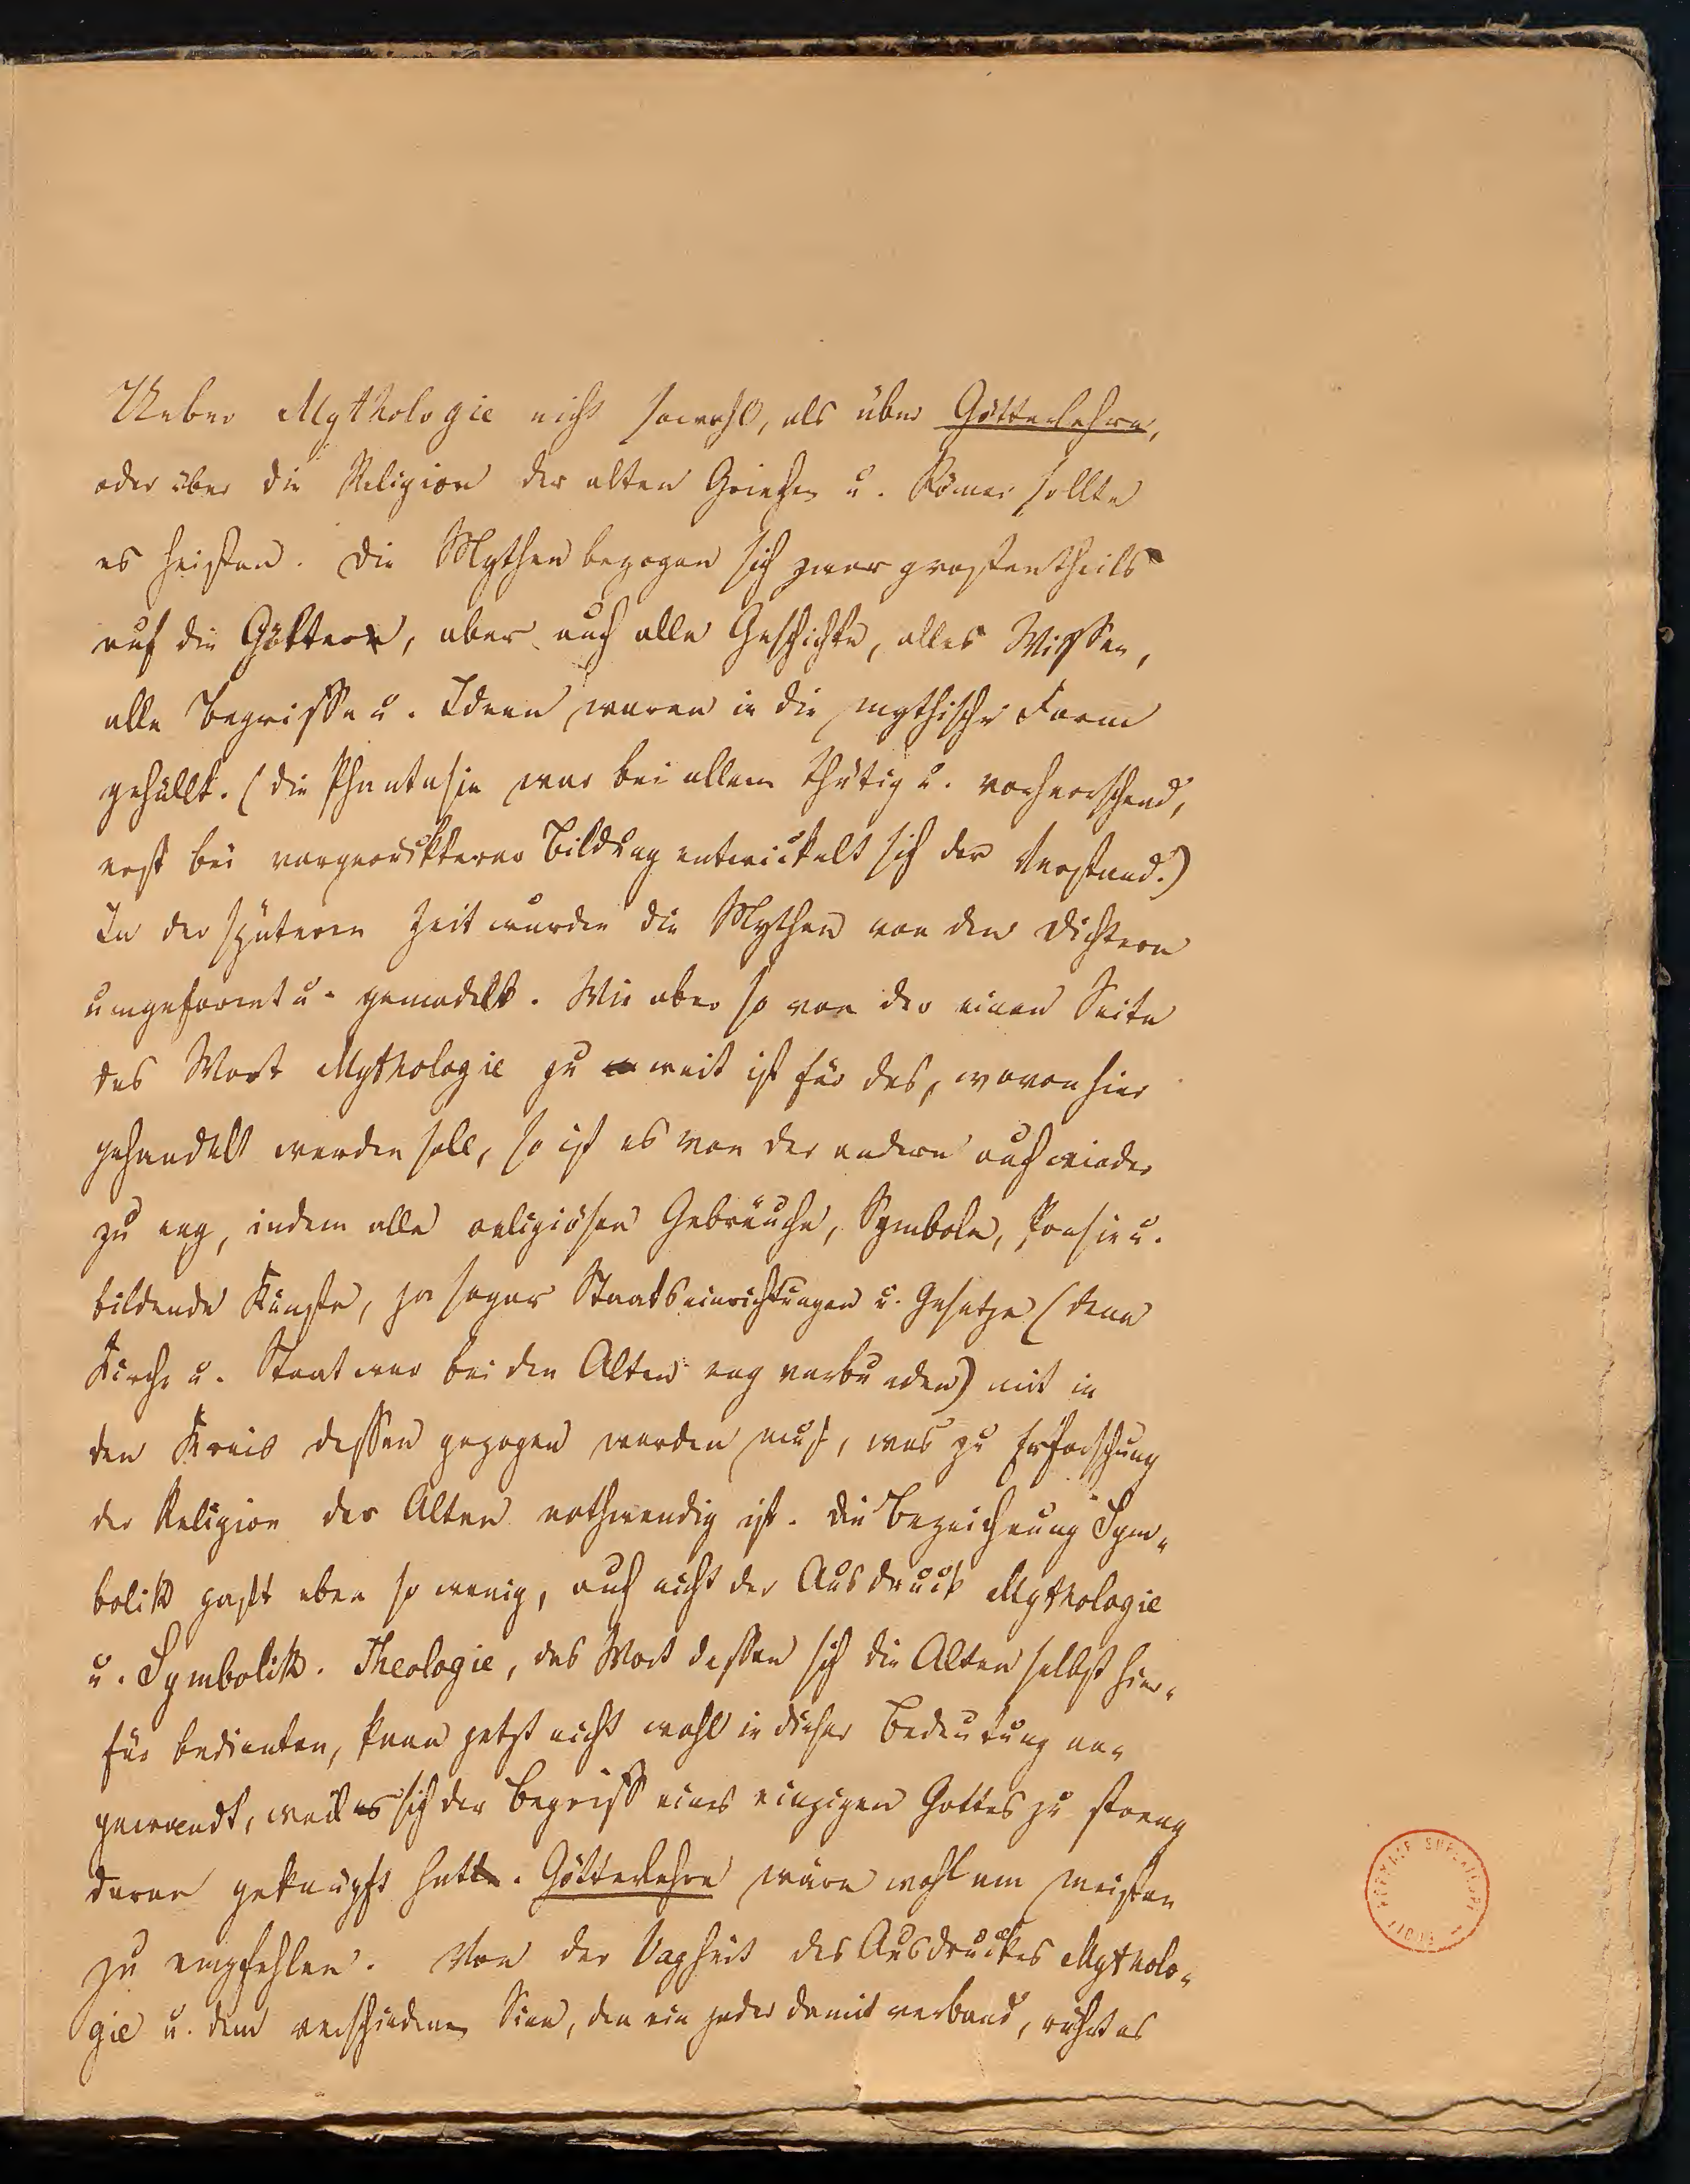 Ueber Mythologie nicht sowohl, als über Götterlehre,
oder über die Religion der alten Griechen u. Römer sollte
es heißen. Die Mythen bezogen sich zwar großentheils
auf die Götter, aber auch alle Geschichte, alles Wissen,
alle Begriffe u. Ideen waren in die mythische Form
gehüllt. (Die Phantasie war bei allem thätig u. vorherrschend,
erst bei vorgerückterer Bildung entwickelt sich der Verstand.)
In der späteren Zeit wurden die Mythen von den Dichtern
umgeformt u. gemodelt. Wie aber so von der einen Seite
das Wort Mythologie zu weit ist für das, wovon hier
gehandelt werden soll, so ist es von der andern auch wieder
zu eng, indem alle religiösen Gebräuche, Symbole, Poesie u.
bildende Künste, ja sogar Staatseinrichtungen u. Gesetze (denn
Kirche u. Staat war bei den Alten eng verbunden) mit in
den Kreis dessen gezogen werden muß, was zu Erforschung
der Religion der Alten nothwendig ist. Die Bezeichnung Sym-
bolik paßt eben so wenig, auch nicht der Ausdruck Mythologie
u. Symbolik. Theologie, das Wort dessen sich die Alten selbst hier-
für bedienten, kann jetzt nicht wohl in dieser Bedeutung an-
gewandt, weil sich der Begriff eines einzigen Gottes zu streng
daran geknüpft hat. Götterlehre wäre wohl am meisten
zu empfehlen. Von der Vagheit des Ausdruckes Mytholo-
gie u. dem verschiedenen Sinn, den ein jeder damit verband, rührt es